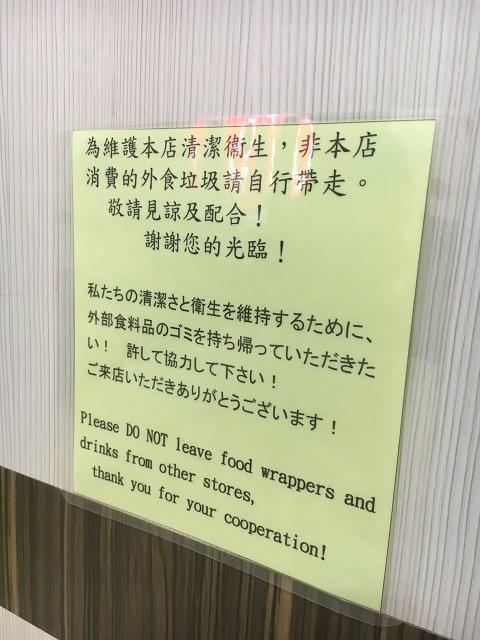 為維護本店清潔衛生，非本店
消費的外食垃圾請自行帶走。
敬請見諒及配合！
謝謝您的光臨！
私たちの清潔さと衛生を維持するために、
外部食料品のゴミを持ち帰っていただきた
い！　許して協力して下さい！
ご来店いただきありがとうございます！
Please DO NOT leave food wrappers and
drinks from other stores,
thank you for your cooperation!